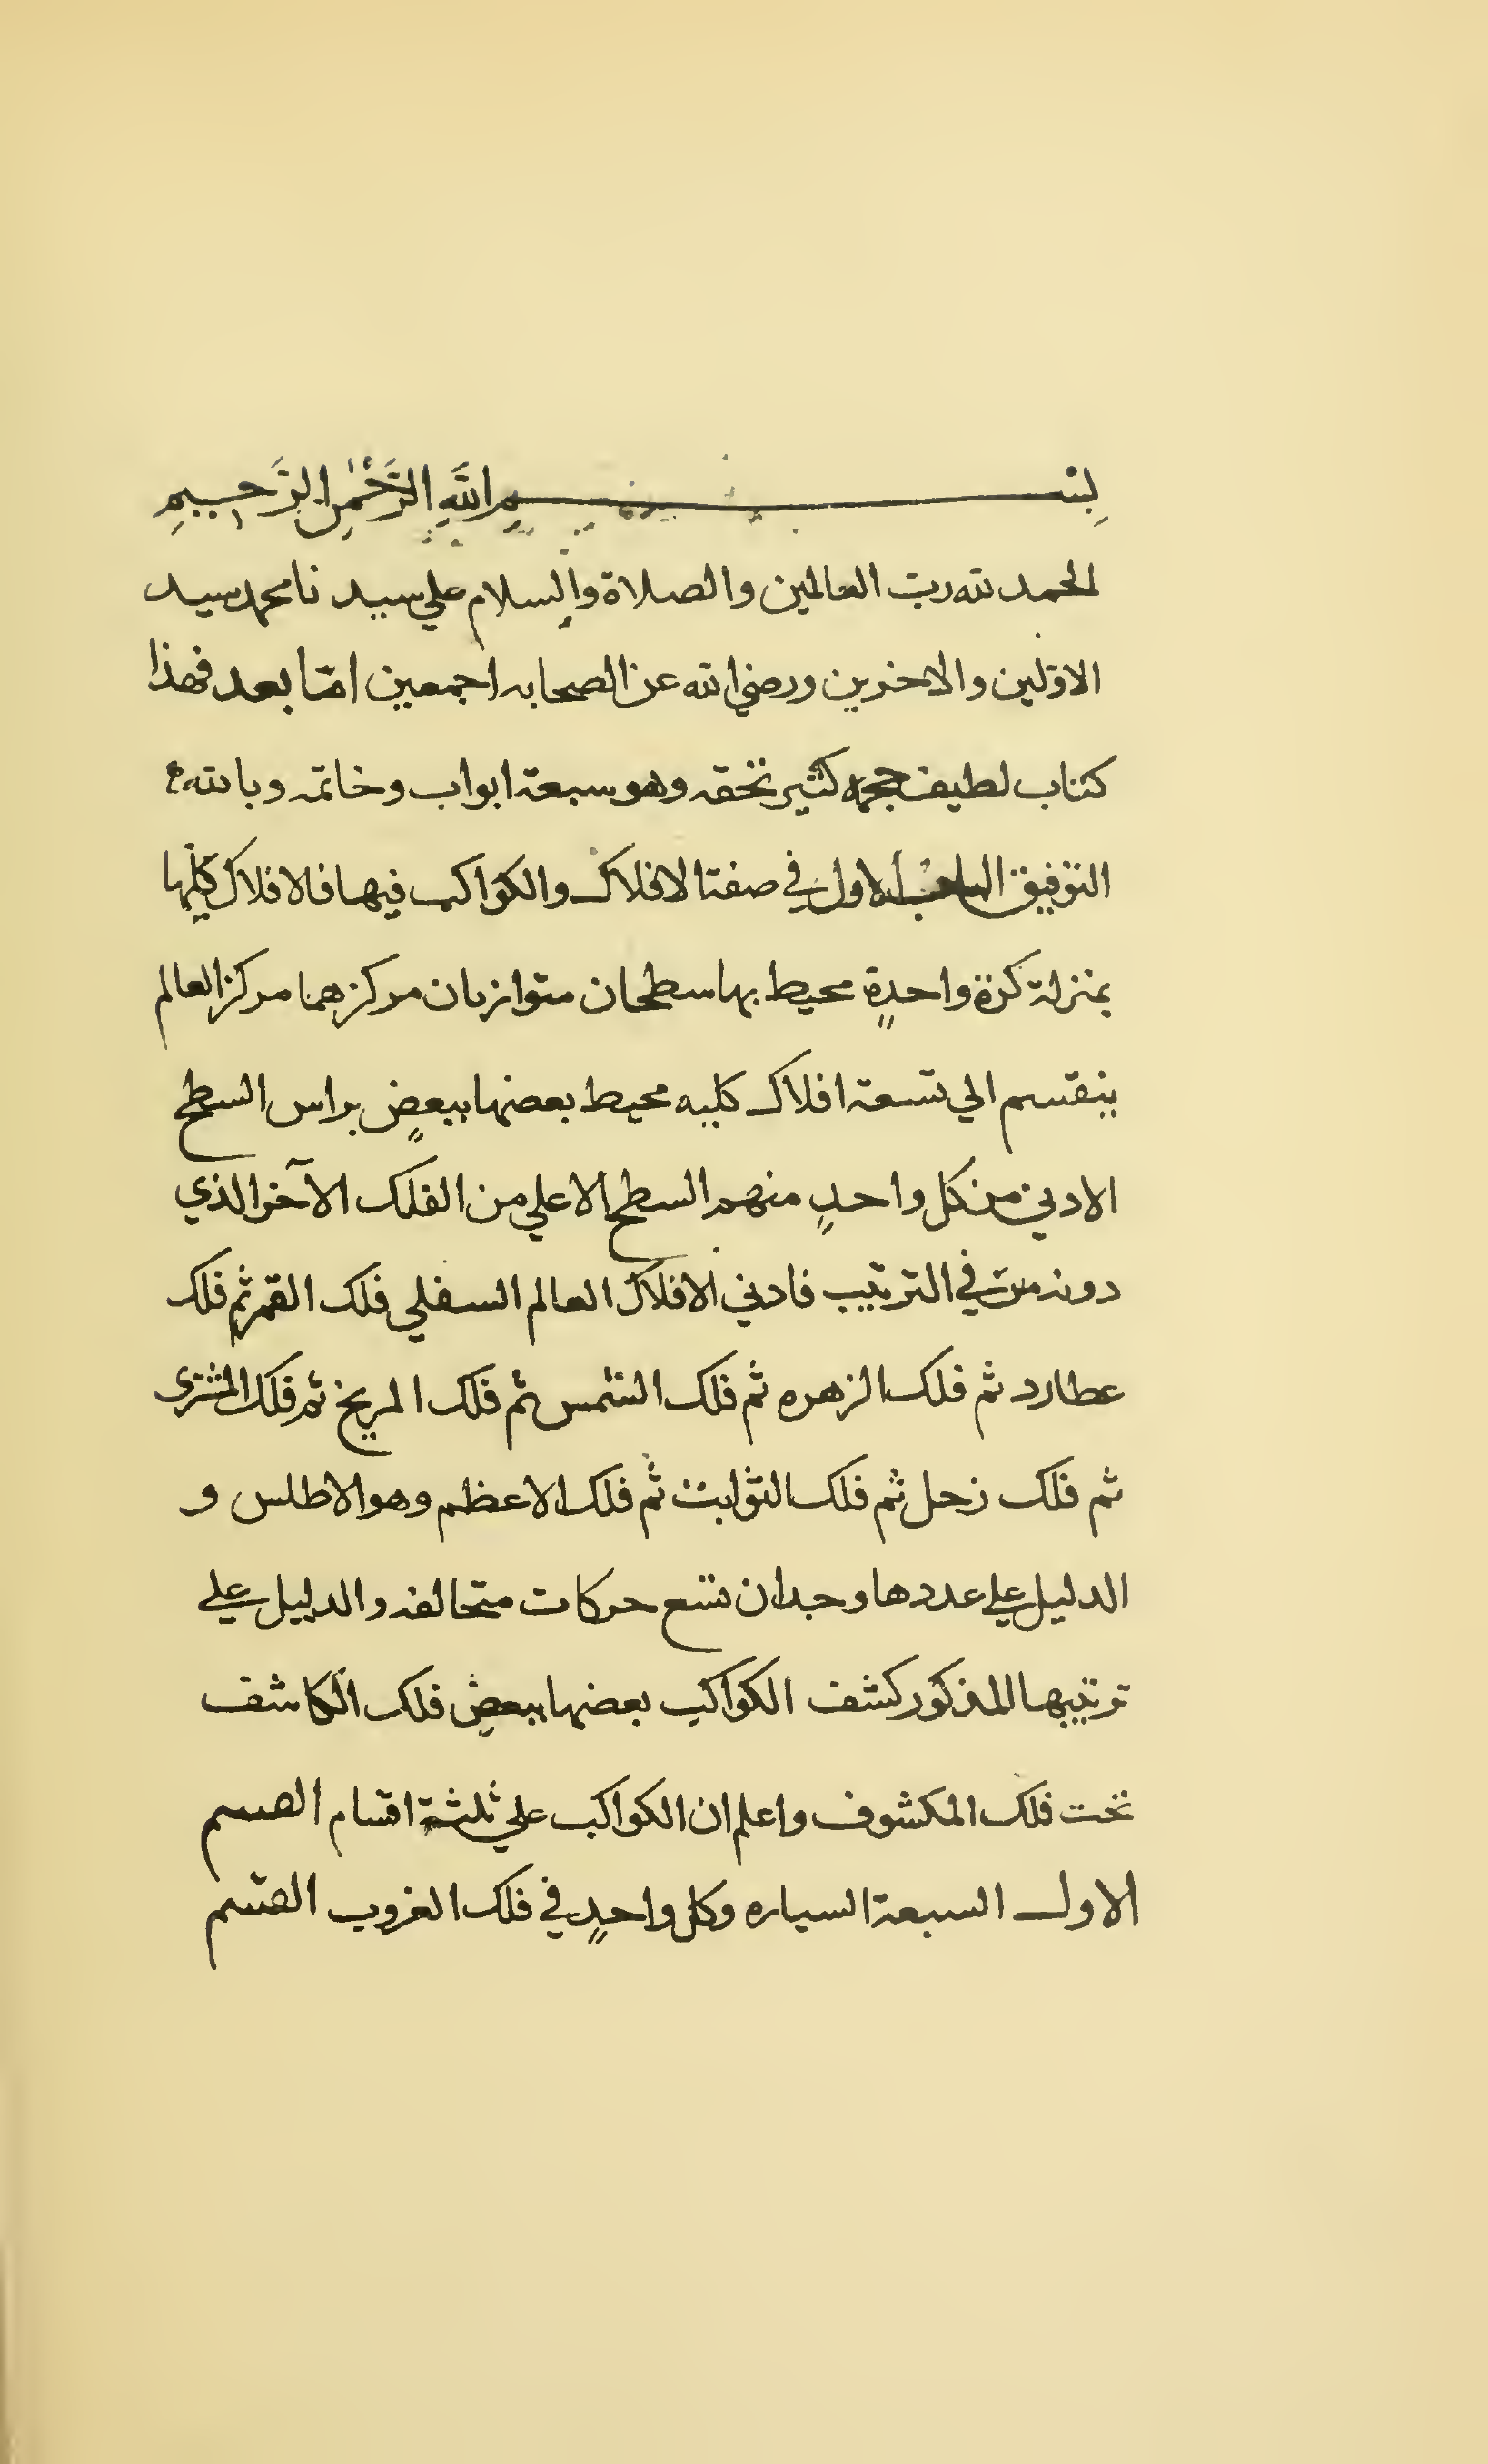 بِسْمِ اللَّهِ الرَّحْمٰنِ الرَّحِيمِ
الحمد لله ربّ العالمين والصلاة والسلام علي سيد نا محمد سيد
الاوّلين والاخرين ورضي الله عن الصحابه اجمعين امّا بعد فهذا
كتاب لطيف حجمه كثير تحقه وهو سبعة ابواب وخاتمه وبالله
التوفيق الباب الاول في صفة الافلاك والكواكب فيها فالافلاك كلّها
بمنزلة كرة واحدةٍ محيط بها سطحان متوازيان مركزهما مركز العالم
ينقسم الي تسعة افلاك كليه محيط بعضها ببعضٍ براس السطح
الادني من كل واحدٍ منهم السطح الاعلي من الفلك الآخر الذي
دونه في الترتيب فادني الافلاك العالم السفلي فلك القمر ثم فلك
عطارد ثم فلك الزهره ثم فلك الشمس ثم فلك المريخ ثم فلك المشترى
ثم فلك زحل ثم فلك الثوابت ثم فلك الاعظم وهو الاطلس و
الدليل علي عددها وجدان تسع حركات متخالفه والدليل علي
ترتيبها المذكور كشف الكواكب بعضها ببعضٍ فلك الكاشف
تحت فلك المكشوف واعلم ان الكواكب علي ثلثة اقسام القسم
الاول السبعة السياره وكل واحدٍ في فلك الغروب القسم